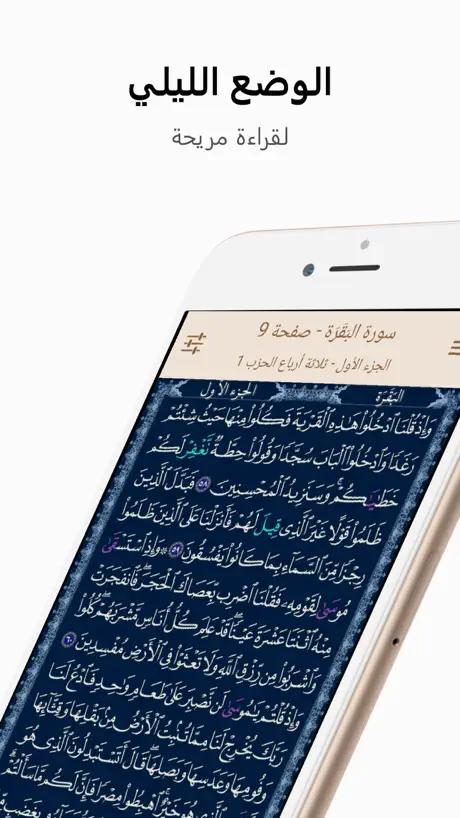 الوضع الليلي
لقراءة مريحة
سورة البَقَرَة - صفحة 9
الجزء الأول - ثلاثة أرباع الحزب 1
البَقَرَة
الجزء الأول
وَإِذْ قُلْنَا ٱدْخُلُوا۟ هَٰذِهِ ٱلْقَرْيَةَ فَكُلُوا۟ مِنْهَا حَيْثُ شِئْتُمْ
رَغَدًا وَٱدْخُلُوا۟ ٱلْبَابَ سُجَّدًا وَقُولُوا۟ حِطَّةٌ نَّغْفِرْ لَكُمْ
خَطَٰيَٰكُمْ ۚ وَسَنَزِيدُ ٱلْمُحْسِنِينَ ٥٨ فَبَدَّلَ ٱلَّذِينَ
ظَلَمُوا۟ قَوْلًا غَيْرَ ٱلَّذِى قِيلَ لَهُمْ فَأَنزَلْنَا عَلَى ٱلَّذِينَ ظَلَمُوا۟
رِجْزًا مِّنَ ٱلسَّمَآءِ بِمَا كَانُوا۟ يَفْسُقُونَ ٥٩ ۞ وَإِذِ ٱسْتَسْقَىٰ
مُوسَىٰ لِقَوْمِهِۦ فَقُلْنَا ٱضْرِب بِّعَصَاكَ ٱلْحَجَرَ ۖ فَٱنفَجَرَتْ
مِنْهُ ٱثْنَتَا عَشْرَةَ عَيْنًا ۖ قَدْ عَلِمَ كُلُّ أُنَاسٍ مَّشْرَبَهُمْ ۖ كُلُوا۟
وَٱشْرَبُوا۟ مِن رِّزْقِ ٱللَّهِ وَلَا تَعْثَوْا۟ فِى ٱلْأَرْضِ مُفْسِدِينَ ٦٠
وَإِذْ قُلْتُمْ يَٰمُوسَىٰ لَن نَّصْبِرَ عَلَىٰ طَعَامٍ وَٰحِدٍ فَٱدْعُ لَنَا
رَبَّكَ يُخْرِجْ لَنَا مِمَّا تُنۢبِتُ ٱلْأَرْضُ مِنۢ بَقْلِهَا وَقِثَّآئِهَا
وَفُومِهَا وَعَدَسِهَا وَبَصَلِهَا ۖ قَالَ أَتَسْتَبْدِلُونَ ٱلَّذِى هُوَ
بِٱلَّذِى هُوَ خَيْرٌ ۚ ٱهْبِطُوا۟ مِصْرًا فَإِنَّ لَكُم مَّا سَأَلْتُمْ ۗ